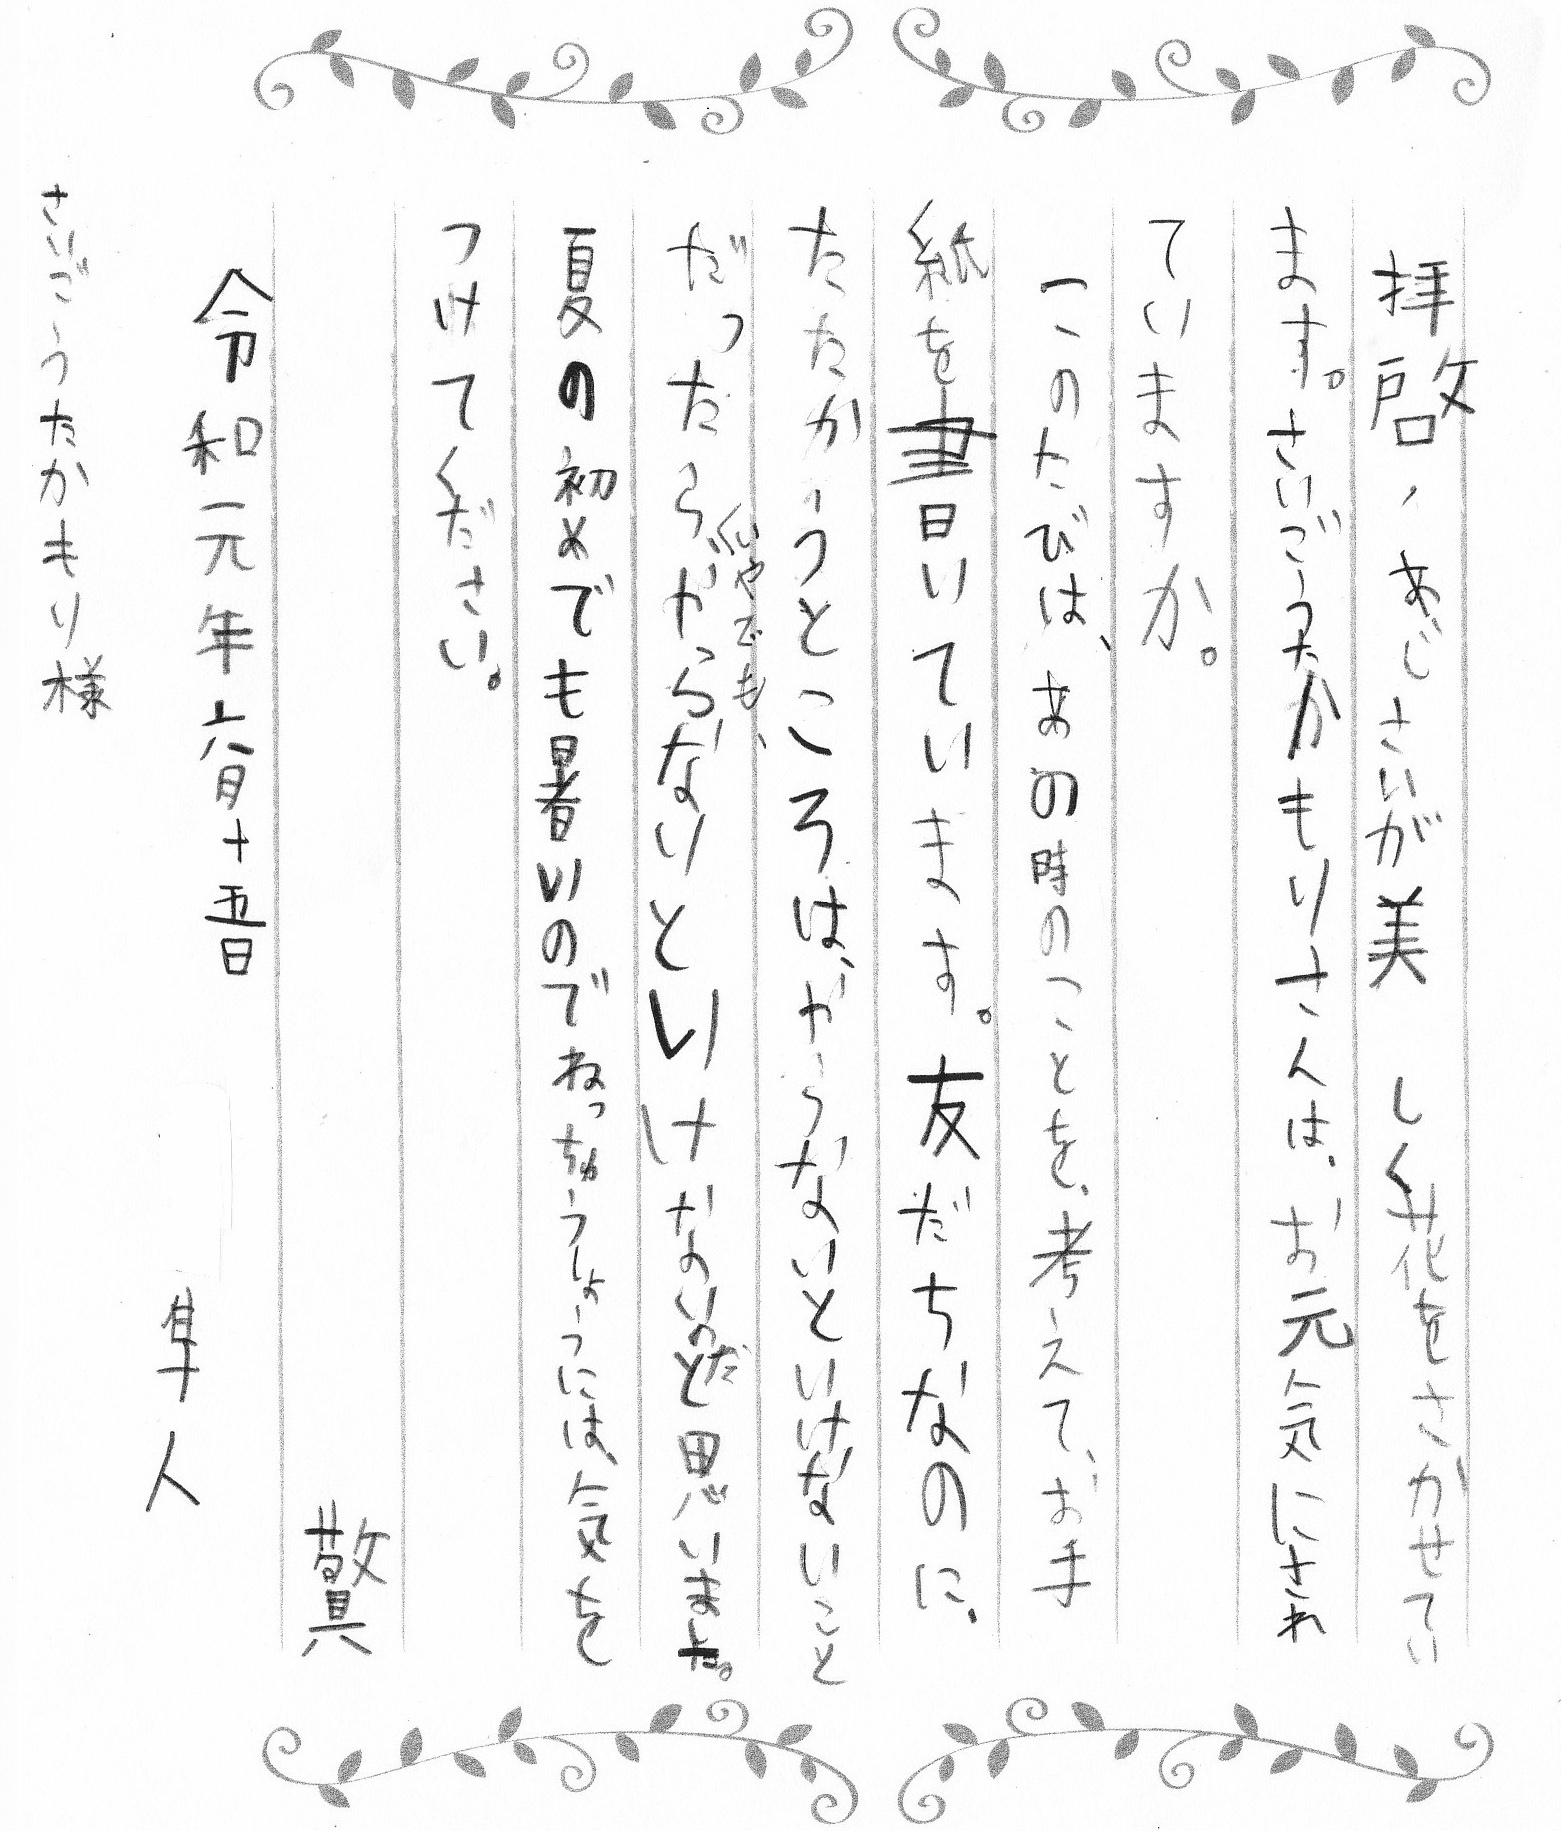 拝啓、あじさいが美しく花をさかせてい
ます。さいごうたかもりさんは、お元気にされ
ていますか。
このたびは、あの時のことを、考えて、お手
紙を書いています。友だちなのに、
たたかうところは、やらないといけないこと
だったら、いやでも、やらないといけないのだと思いました。
夏の初めでも暑いのでねっちゅうしょうには、気を
つけてください。
敬具
令和元年六月十五日
隼人
さいごうたかもり様